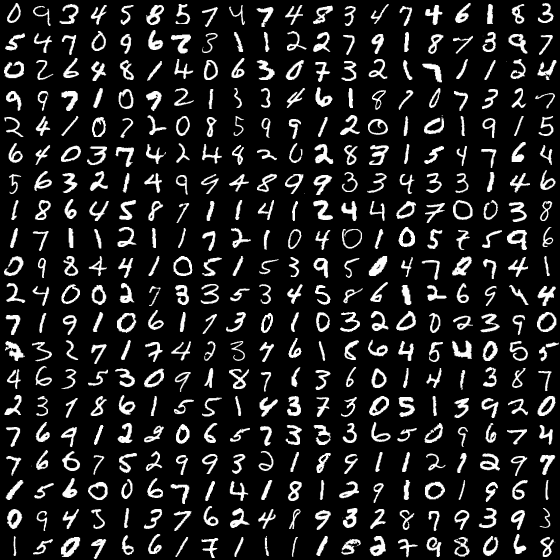 0 9 3 4 5 8 5 7 4 7 4 8 3 4 7 4 6 1 8 3
5 4 7 0 9 6 7 3 1 1 2 2 7 9 1 8 7 3 9 7
0 2 6 4 8 1 4 0 6 3 0 7 3 2 1 7 1 1 2 4
9 9 7 1 0 9 2 1 3 3 4 6 1 8 7 0 7 3 2 7
2 4 1 0 7 2 0 8 5 9 9 1 2 0 1 0 1 9 1 5
6 4 0 3 7 4 2 4 8 2 0 2 8 3 1 5 4 7 6 4
5 6 3 2 1 4 9 9 4 8 9 9 3 3 4 3 3 1 4 6
1 8 6 4 5 8 7 1 1 4 1 2 4 4 0 7 0 0 3 8
1 7 1 1 2 1 1 7 2 1 0 4 0 1 0 5 7 5 9 6
0 9 8 4 4 1 0 5 1 5 3 9 5 0 4 7 2 7 4 1
2 4 0 0 2 7 3 3 5 3 4 5 8 6 1 2 6 9 4 4
7 1 9 1 0 6 1 7 3 0 1 0 3 2 0 0 2 3 9 0
7 3 2 7 1 7 4 2 3 7 6 1 8 6 4 5 4 0 5 5
4 6 3 5 3 0 9 1 8 7 6 3 6 0 1 4 1 3 8 7
2 3 7 8 6 1 5 5 1 4 3 7 3 0 5 1 3 9 2 0
7 6 9 1 2 2 0 6 5 7 3 3 3 6 5 0 9 6 7 4
7 6 6 7 5 2 9 9 3 2 1 8 9 1 1 2 7 2 9 7
1 5 6 0 0 6 7 1 4 1 8 1 2 9 1 0 1 9 6 1
0 9 4 3 1 3 7 6 2 4 8 9 3 2 8 7 9 3 9 3
1 5 0 9 6 6 1 7 1 1 1 1 5 2 7 9 8 0 6 8